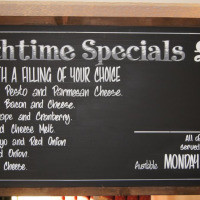 htime Specials
TH A FILLING OF YOUR CHOICE
Pesto and Parmesan Cheese.
Bacon and Cheese.
ape and Cranberry.
d Cheese Melt
yo and Red Onion
d Onion.
Cheese.
All d
served
Available MONDAY